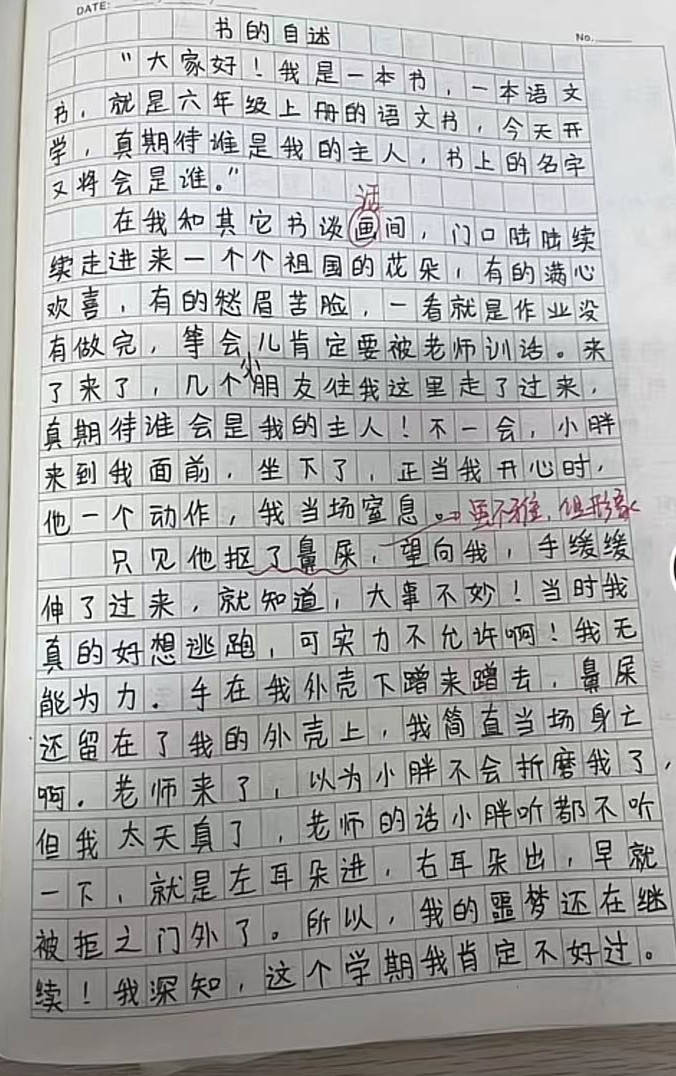 DATE:
No.
书的自述
“大家好！我是一本书，一本语文
书，就是六年级上册的语文书，今天开
学，真期待谁是我的主人，书上的名字
又将会是谁。”
话
在我和其它书谈画间，门口陆陆续
续走进来一个个祖国的花朵，有的满心
欢喜，有的愁眉苦脸，一看就是作业没
有做完，等会儿肯定要被老师训话。来
了来了，几个小朋友往我这里走了过来，
真期待谁会是我的主人！不一会，小胖
来到我面前，坐下了，正当我开心时，
他一个动作，我当场窒息。虽不雅，但形象
只见他抠了鼻屎，望向我，手缓缓
伸了过来，就知道，大事不妙！当时我
真的好想逃跑，可实力不允许啊！我无
能为力。手在我外壳下蹭来蹭去，鼻屎
还留在了我的外壳上，我简直当场身亡
啊。老师来了，以为小胖不会折磨我了，
但我太天真了，老师的话小胖听都不听
一下，就是左耳朵进，右耳朵出，早就
被拒之门外了。所以，我的噩梦还在继
续！我深知，这个学期我肯定不好过。